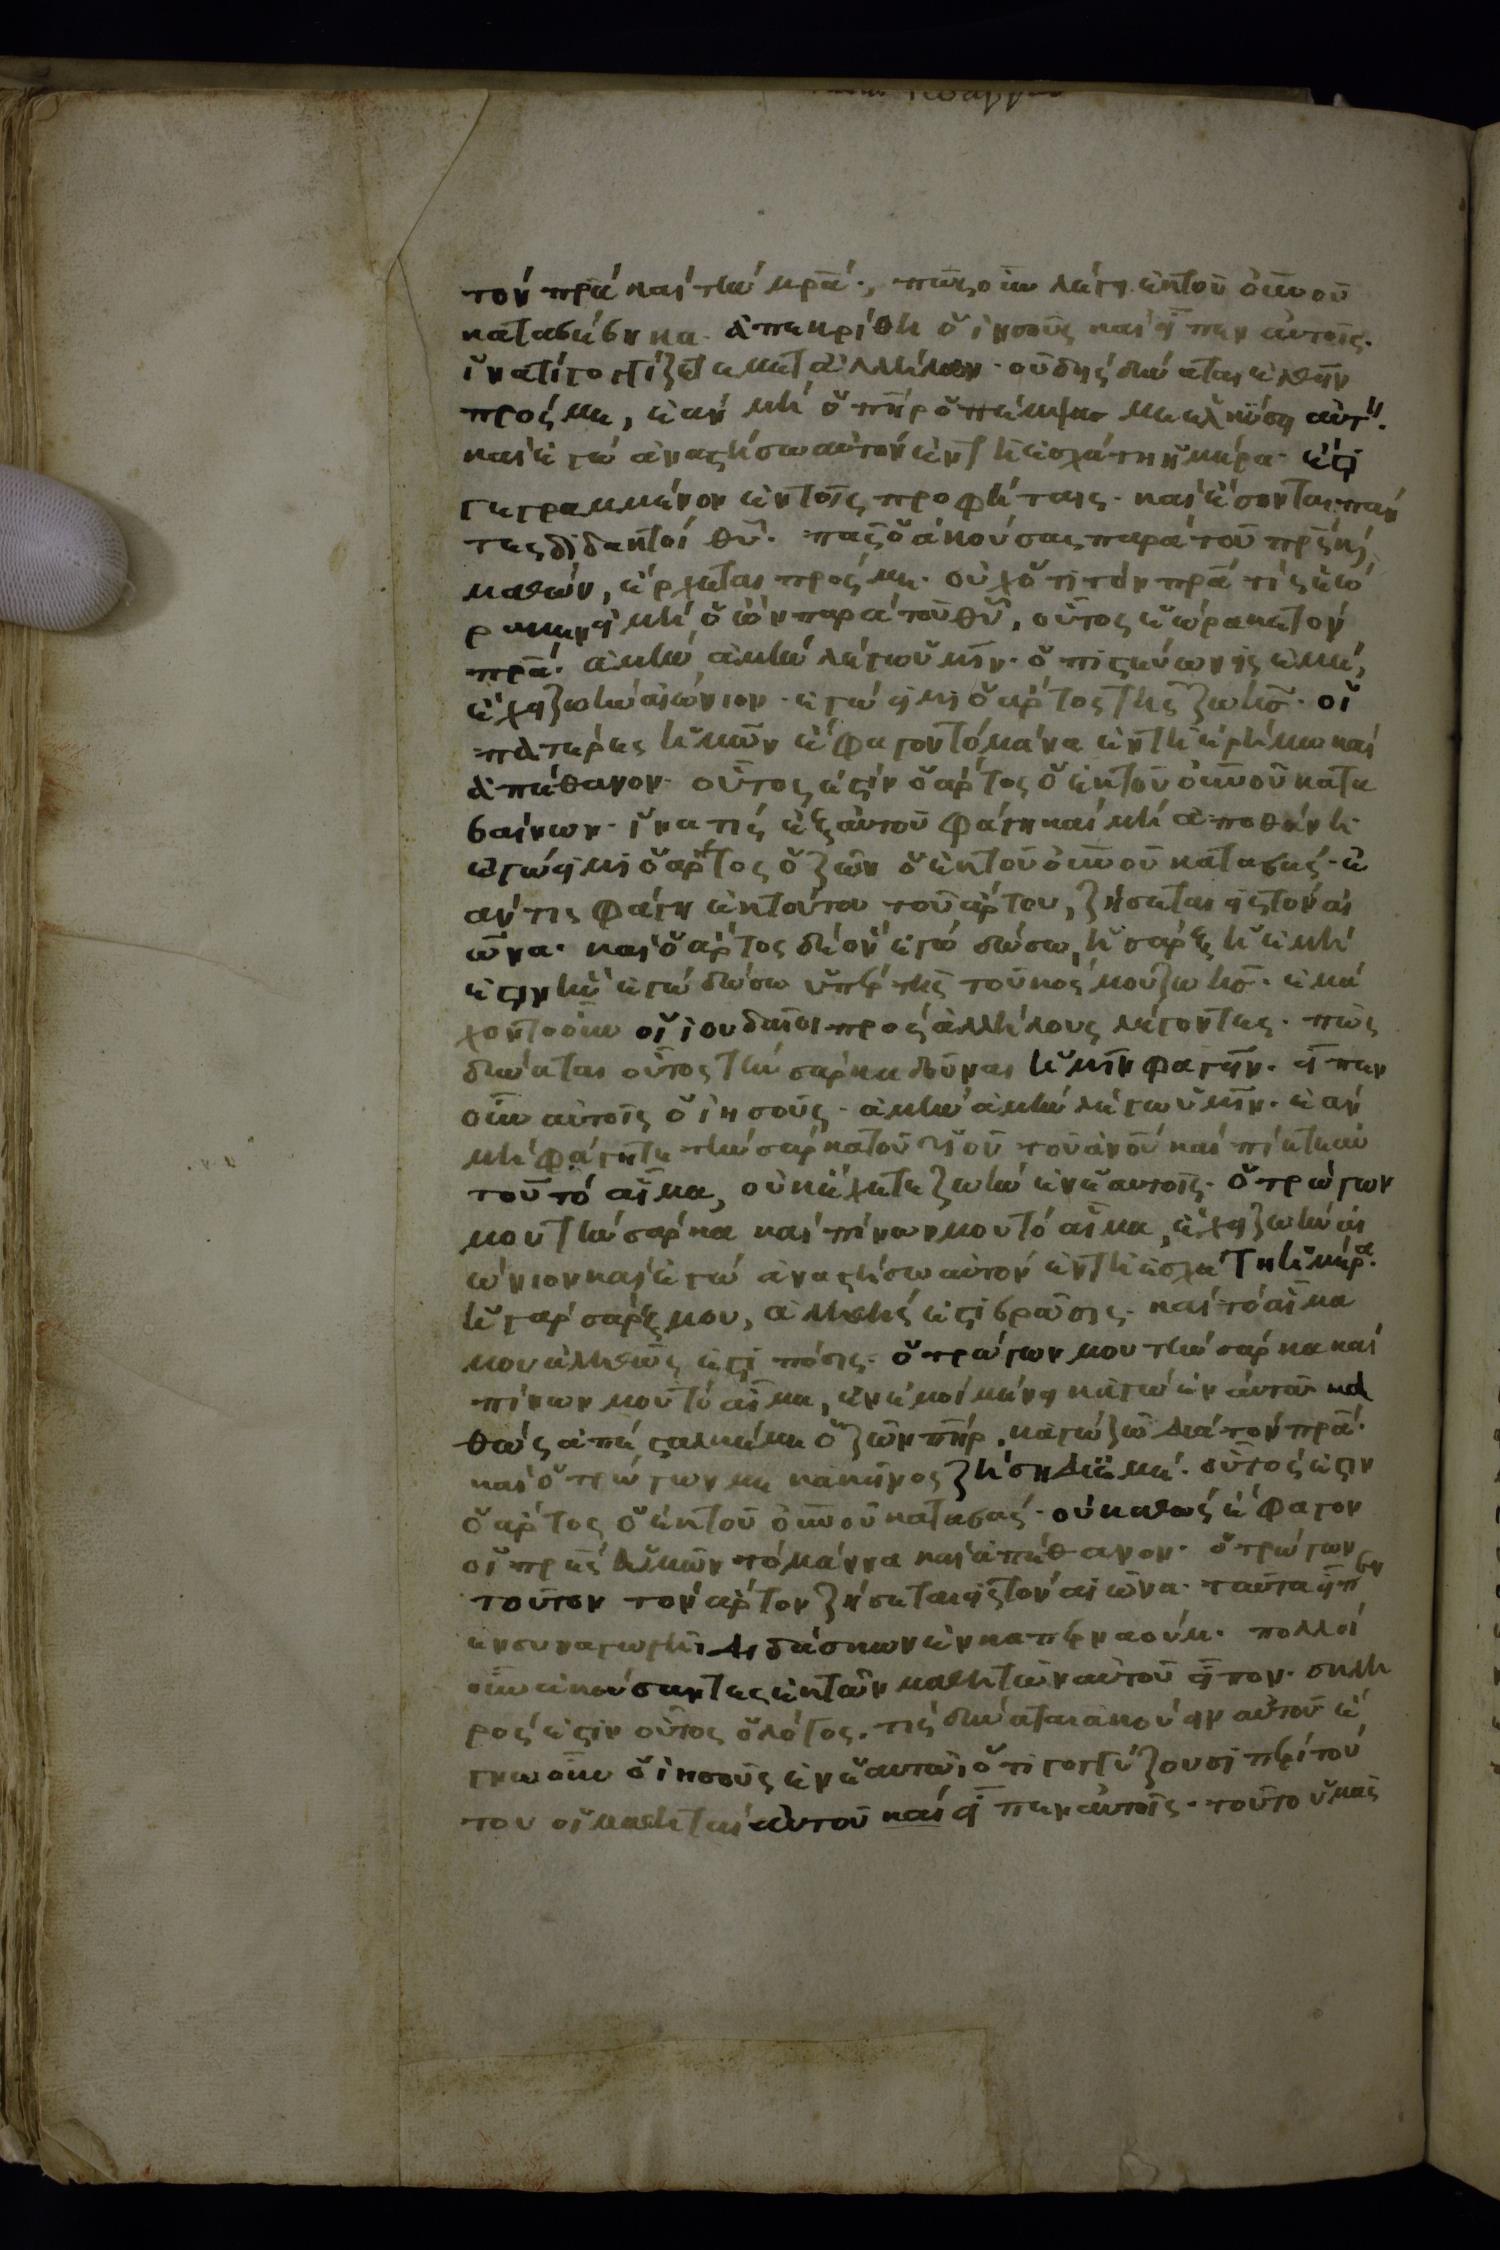 τὸν πρα καὶ τὴν μρα., πῶς οὖν λέγει ἐκ τοῦ οὐνοῦ
καταβέβηκα. ἀπεκρίθη ὁ ἰησοῦς καὶ εἶπεν αὐτοῖς.
ἵνα τί γογγίζετε μετ ἀλλήλων. οὐδεὶς δύναται ἐλθεῖν
πρός με, ἐὰν μὴ ὁ πηρ ὁ πέμψας με ἑλκύσει αὐτ.
καὶ ἐγὼ ἀναστήσω αὐτὸν ἐν τῆ ἐσχάτη ἡμέρα. ἐστι
γεγραμμένον ἐν τοῖς προφήταις. καὶ ἔσονται παν
τες διδακτοὶ θυ. πᾶς ὁ ἀκούσας παρὰ τοῦ πρς καὶ
μαθὼν, ἔρχεται πρός με. οὐχ ὅτι τὸν πρα τις ἑώ
ρακεν εἰ μὴ ὁ ὢν παρὰ τοῦ θυ, οὗτος ἑώρακε τὸν
πρα. ἀμὴν ἀμὴν λέγω ὑμῖν. ὁ πιστεύων εἰς ἐμὲ,
ἔχει ζωὴν αἰώνιον. ἐγώ εἰμι ὁ ἄρτος τῆς ζωῆς. οἱ
πατέρες ἡμῶν ἔφαγον τὸ μάνα ἐν τῆ ἐρήμω καὶ
ἀπέθανον. οὗτος ἐστὶν ὁ ἄρτος ὁ ἐκ τοῦ οὐνοῦ κατα
βαίνων. ἵνα τὶς ἐξ αὐτοῦ φάγη καὶ μὴ ἀποθάνη.
ἐγώ εἰμι ὁ ἄρτος ὁ ζῶν ὁ ἐκ τοῦ οὐνοῦ καταβάς. ἐ
άν τις φάγη ἐκ τούτου τοῦ ἄρτου, ζήσεται εἰς τὸν αἰ
ῶνα. καὶ ὁ ἄρτος δὲ ὃν ἐγὼ δώσω, ἡ σάρξ ἡ ἐμὴ
ἐστιν ἣν ἐγὼ δώσω ὑπὲρ τῆς τοῦ κόσμου ζωῆς. ἐμά
χοντο οὖν οἱ ἰουδαῖοι πρὸς ἀλλήλους λέγοντες. πῶς
δύναται οὗτος τὴν σάρκα δοῦναι ἡμῖν φαγεῖν. εἶπεν
οὖν αὐτοῖς ὁ ἰησοῦς. ἀμὴν ἀμὴν λέγω ὑμῖν. ἐὰν
μὴ φάγητε τὴν σάρκα τοῦ υἱοῦ τοῦ ἀνου καὶ πίητε αὐ
τοῦ τὸ αἷμα, οὐκ ἔχετε ζωὴν ἐν ἑαυτοῖς. ὁ τρώγων
μου τὴν σάρκα καὶ πίνων μου τὸ αἷμα, ἔχει ζωὴν αἰ
ώνιον καὶ ἐγὼ ἀναστήσω αὐτὸν ἐν τῆ ἐσχάτη ἡμέρα.
ἡ γὰρ σάρξ μου, ἀληθής ἐστι βρῶσις. καὶ τὸ αἷμα
μου ἀληθῶς ἐστι πόσις. ὁ τρώγων μου τὴν σάρκα καὶ
πίνων μου τὸ αἷμα, ἐν ἐμοὶ μένει κἀγὼ ἐν αὐτῶ. κα
θὼς ἀπέσταλκέ με ὁ ζῶν πηρ. κἀγὼ ζῶ διὰ τὸν πρα.
καὶ ὁ τρώγων με κακεῖνος ζήση δι ἐμέ. οὗτός ἐστιν
ὁ ἄρτος ὁ ἐκ τοῦ οὐνοῦ καταβάς. οὐ καθὼς ἔφαγον
οἱ πρες ἡμῶν τὸ μάννα καὶ ἀπέθανον. ὁ τρώγων
τοῦτον τὸν ἄρτον ζήσεται εἰς τὸν αἰῶνα. ταῦτα εἶπεν
ἐν συναγωγῆ διδάσκων ἐν καπερναούμ. πολλοὶ
οὖν ἀκούσαντες ἐκ τῶν μαθητῶν αὐτοῦ εἶπον. σκλη
ρός ἐστιν οὗτος ὁ λόγος. τίς δύναται ἀκούειν αὐτοῦ ἔ
γνω οὖν ὁ ἰησοῦς ἐν ἑαυτῶ ὅτι γογγύζουσι περὶ τού
του οἱ μαθηταὶ αὐτοῦ καὶ εἶπεν αὐτοῖς. τοῦτο ὑμᾶς